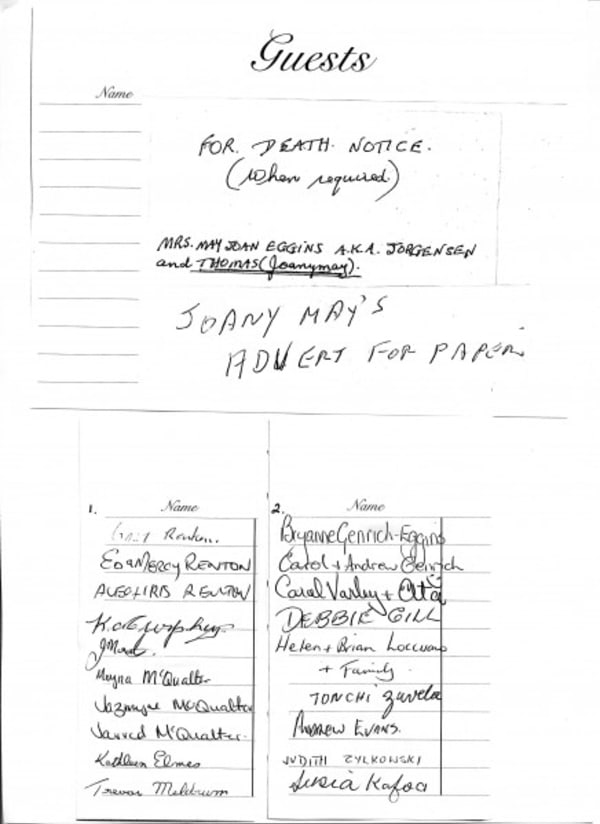 Guests
Name
FOR DEATH NOTICE.
(When required)
MRS. MAY JOAN EGGINS A.K.A. JORGENSEN
and THOMAS (Joanymay).
JOANY MAY'S
ADVERT FOR PAPER.
1. Name
Renton.
ED & MERCY RENTON
ALEC & IRIS RENTON
Moyna McQualter
Jazmyne McQualter
Jarred McQualter.
Kathleen Elmes
Trevor Meldrum
2. Name
Bryanne Genrich-Eggins
Carol + Andrew Genrich
Carol Varley +
DEBBIE GILL
Helen + Brian
+ Family.
TONCHI Zuvela
Andrew Evans.
JUDITH ZYLKOWSKI